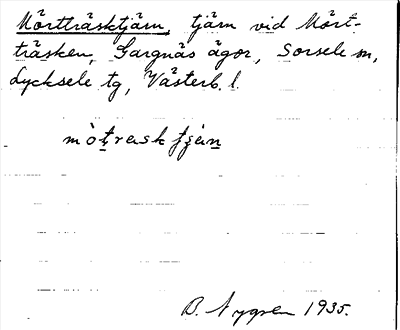 Mörtträsktjärn, tjärn vid Mört-
träsken, Gargnäs ägor, Sorsele sn,
Lycksele tg, Västerb. l.
mò̀ṯrask tjän
B. Nygren 1935.